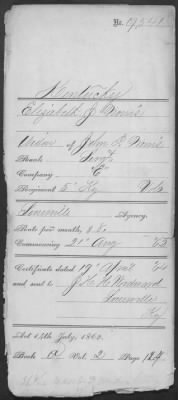 No. 19,241.
Kentucky
Elizabeth J. Norris
Widow of John P. Norris
Rank Serg't
Company "E"
Regiment 5" Ky Vols
Louisville Agency.
Rate per month, $ 8.
Commencing 21" Aug 63
Certificate dated 19" April 64
and sent to J. H. H. Woodward
Louisville
Ky
Act 14th July, 1862.
Book A Vol. 2 Page 124